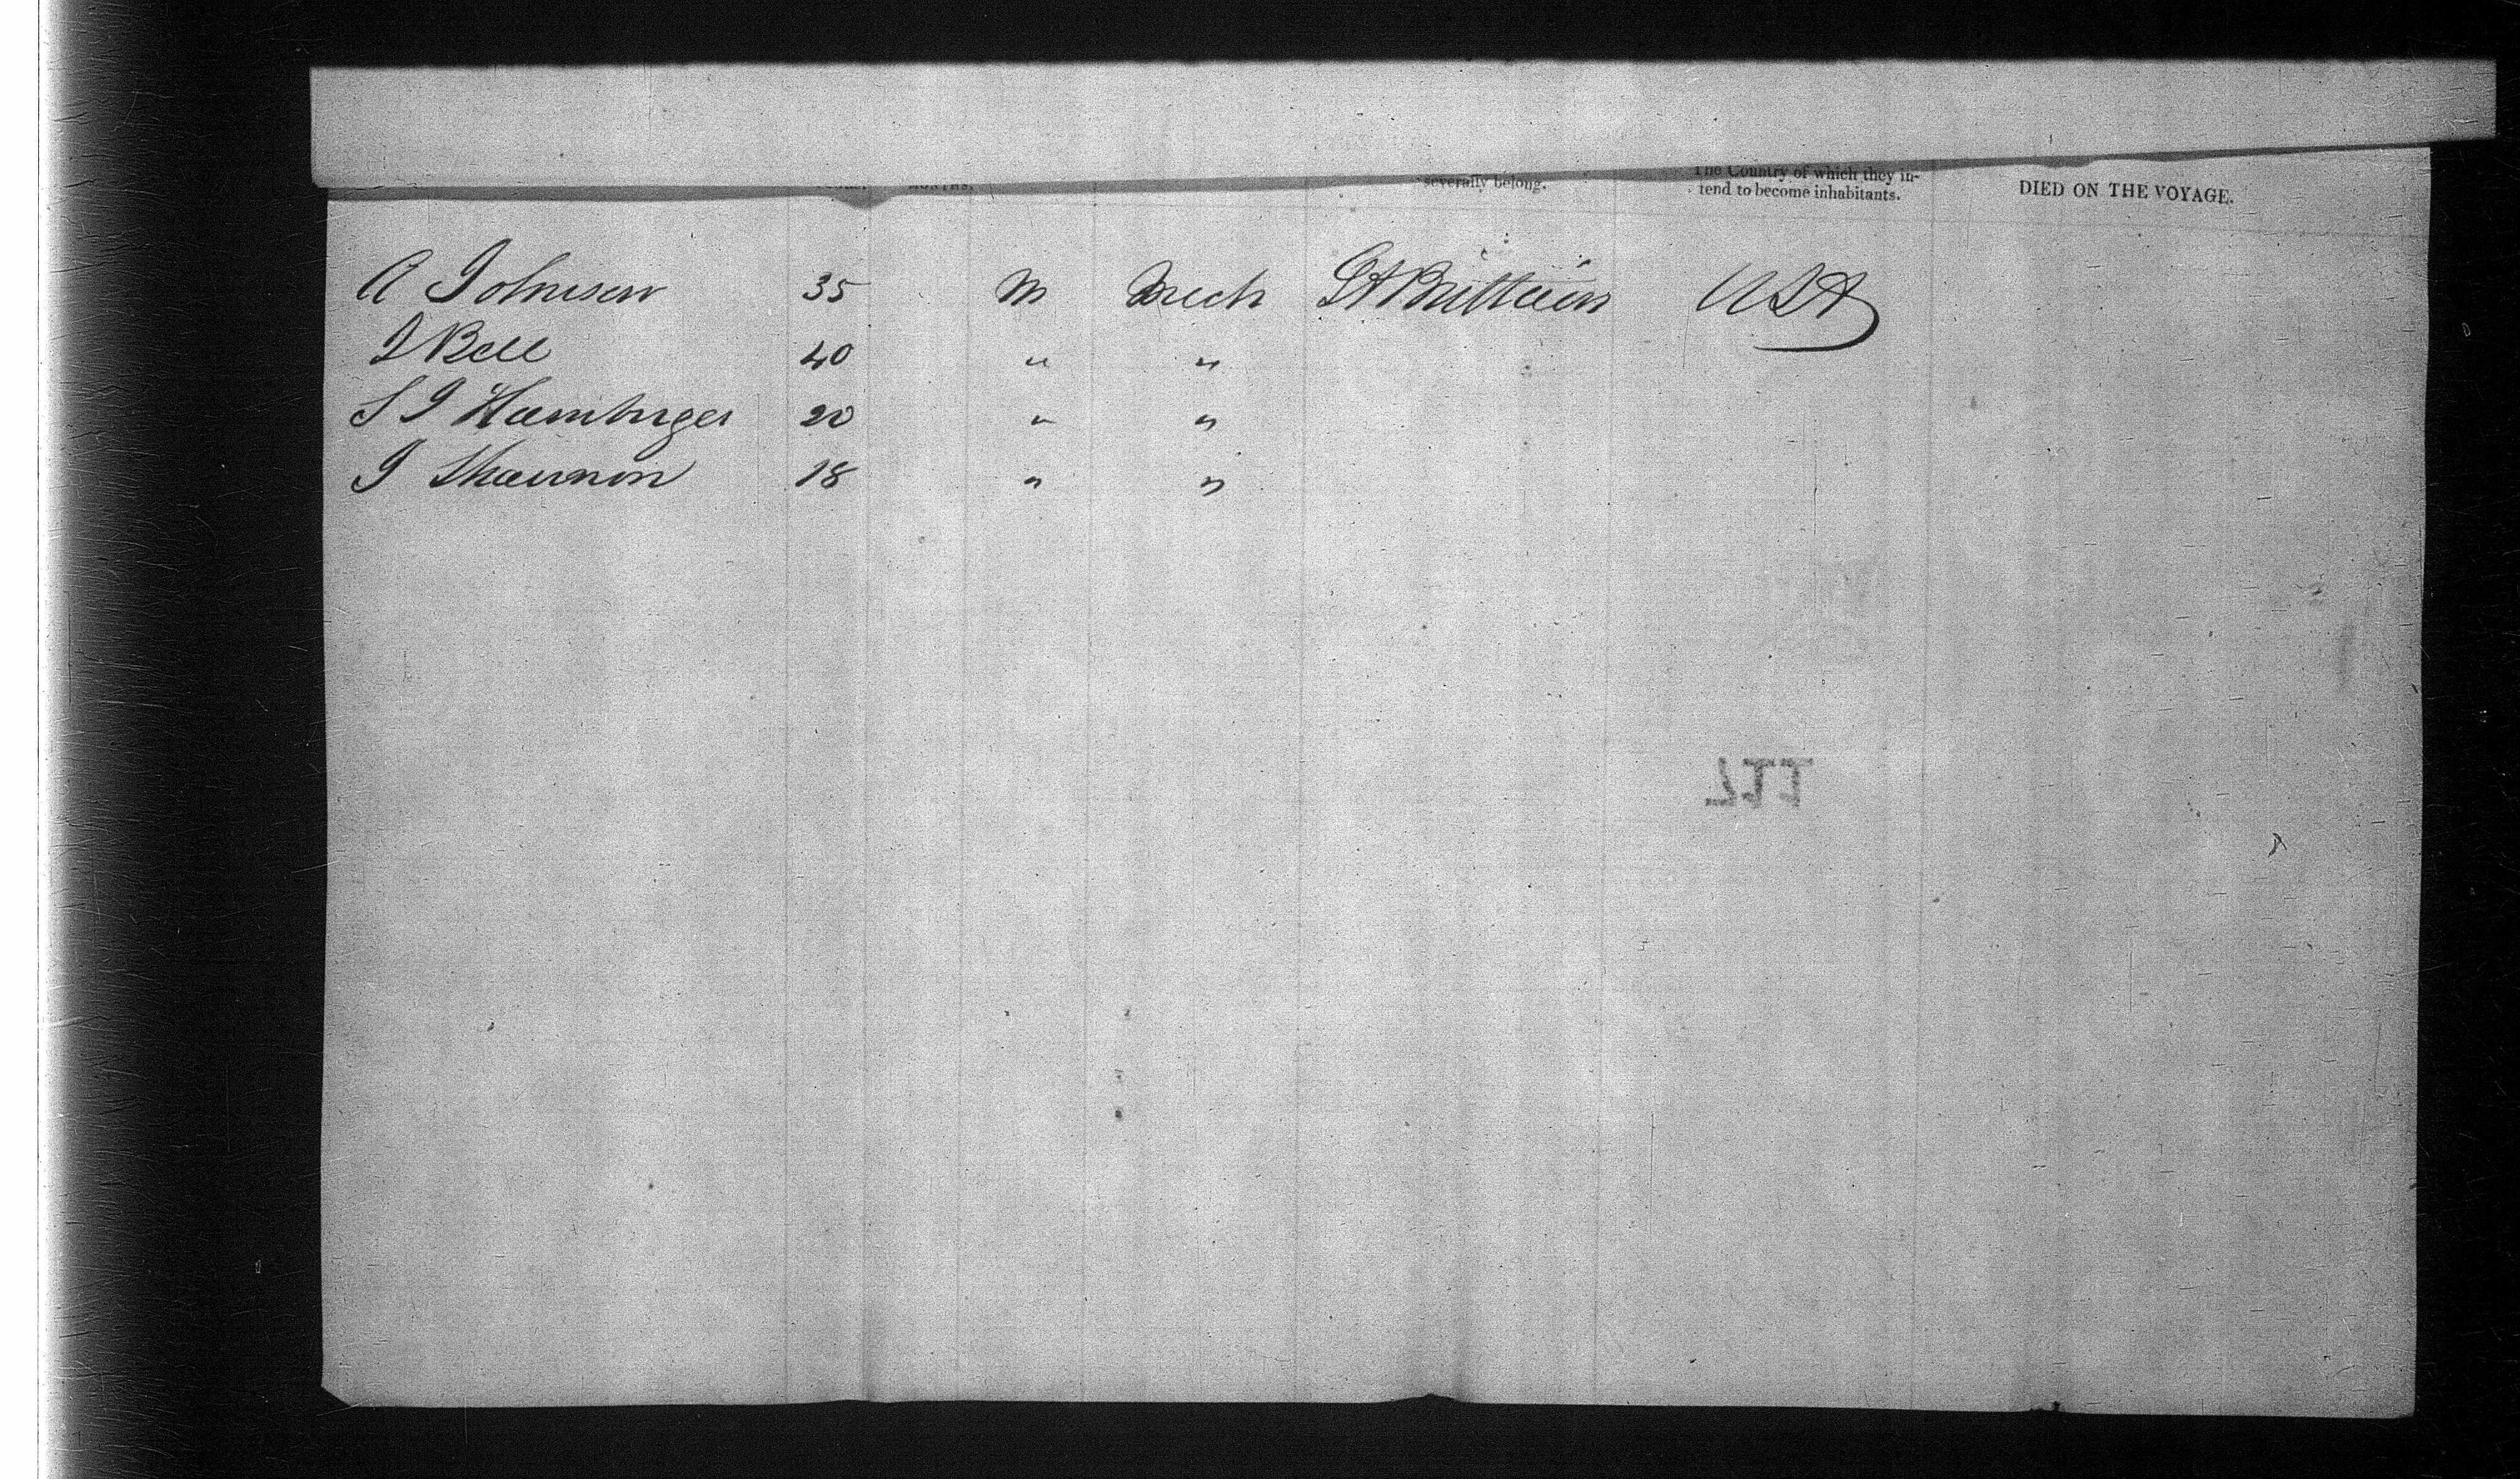 MONTHS.
severally belong.
The Country of which they in-
tend to become inhabitants.
DIED ON THE VOYAGE.
A Johnson 35 M Mech Gt Brittain USA
J Bell 40 " "
S J Hamburger 20 " "
J Shannon 18 " "